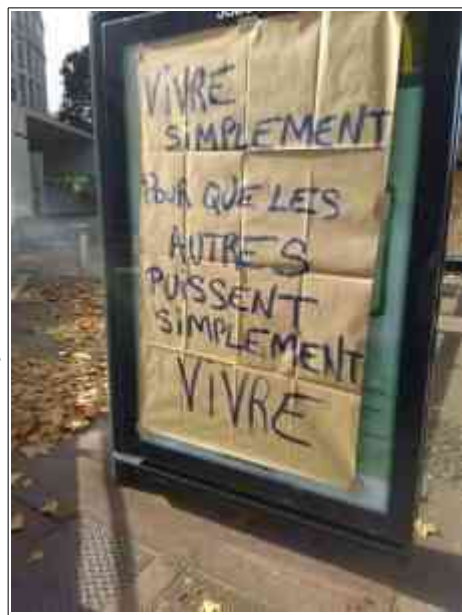 ViVRE
SiMPLEMENT
POUR QUE LES
AUTRES
PUISSENT
SiMPLEMENT
ViVRE